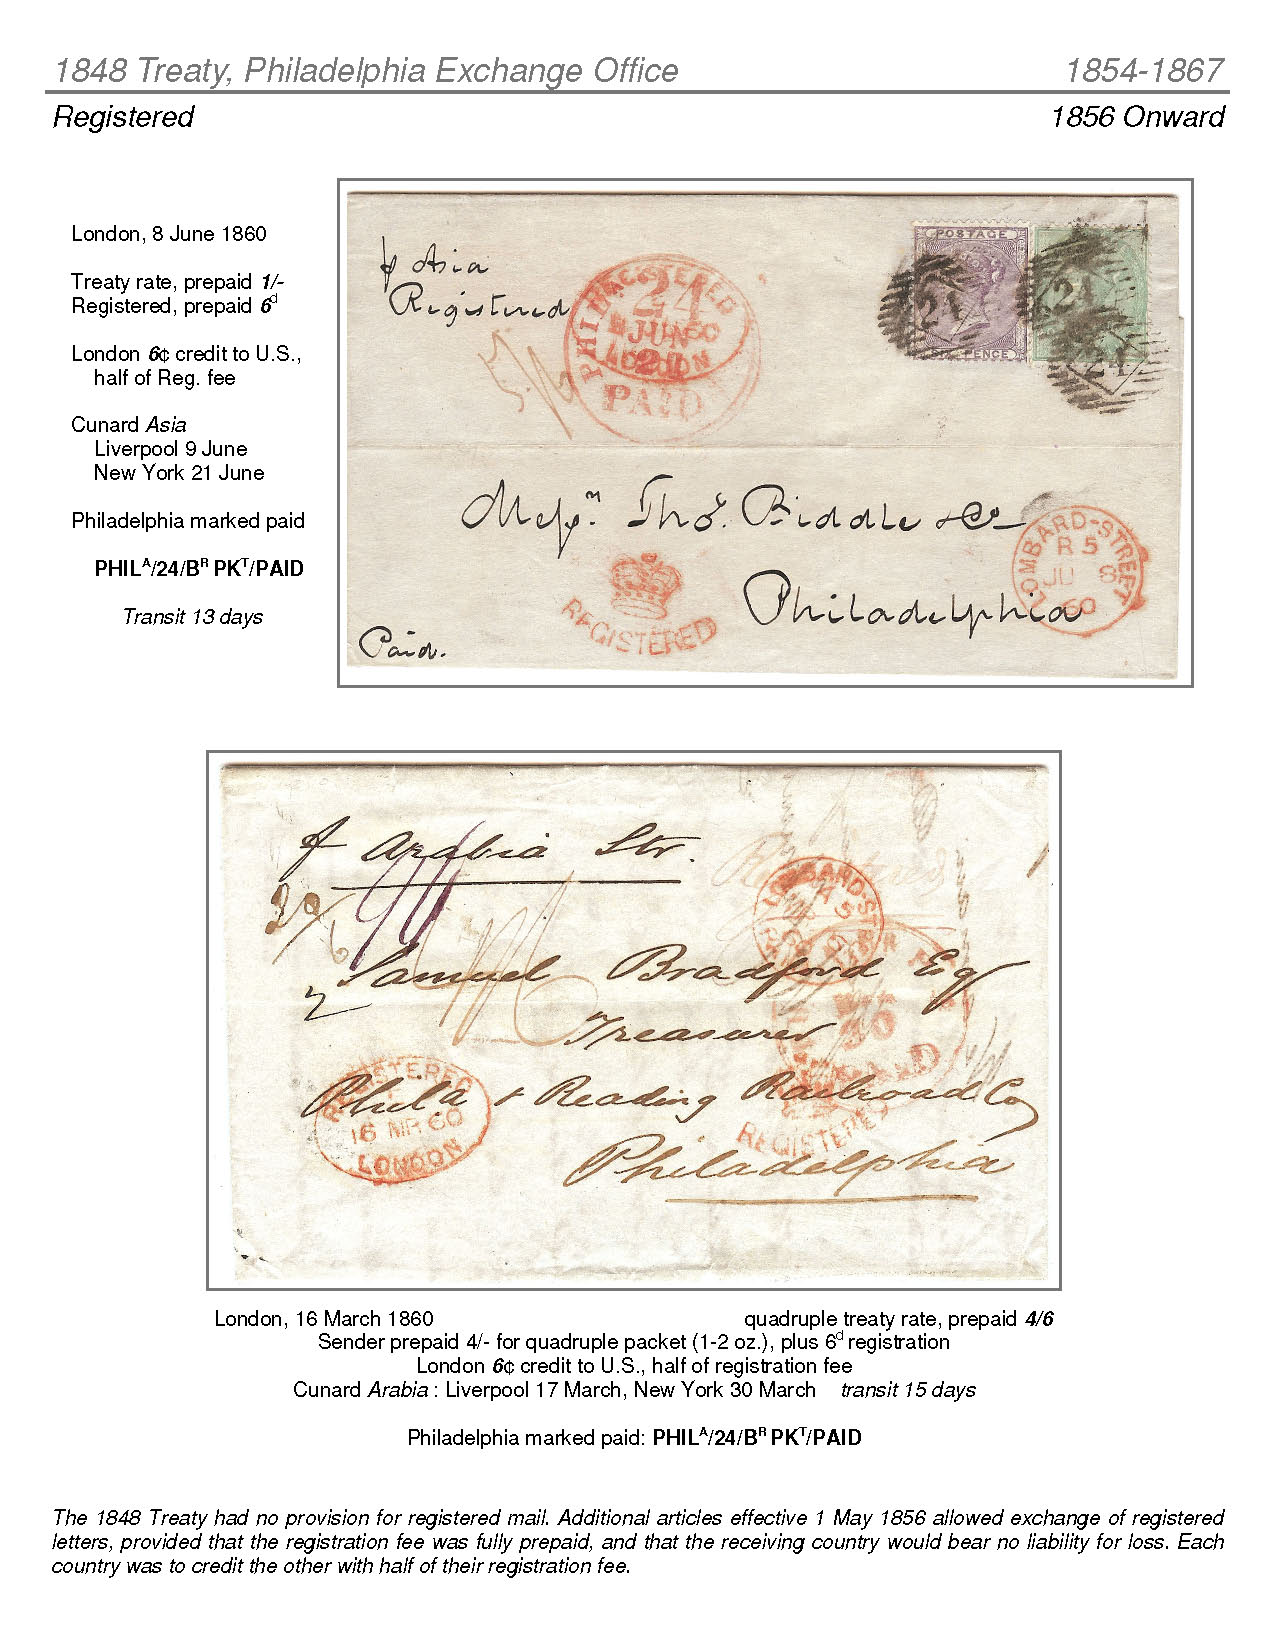 1848 Treaty, Philadelphia Exchange Office 1854-1867
Registered 1856 Onward
London, 8 June 1860
Treaty rate, prepaid 1/-
Registered, prepaid 6d
London 6¢ credit to U.S.,
half of Reg. fee
Cunard Asia
Liverpool 9 June
New York 21 June
Philadelphia marked paid
PHILA/24/BR PKT/PAID
Transit 13 days
p Asia
Registered
PHILA
24
REGISTERED
JUN
LONDON
21
PAID
POSTAGE
SIX PENCE
24
24
24
Messrs. Thos. Biddle & Co
Philadelphia
Paid.
REGISTERED
LOMBARD-STREET
R 5
JU 8
60
p Arabia Str.
Samuel Bradford Esqr
Treasurer
Phila & Reading Railroad Co
Philadelphia
REGISTERED
16 MR 60
LONDON
LOMBARD-ST
PAID
REGISTERED
London, 16 March 1860 quadruple treaty rate, prepaid 4/6
Sender prepaid 4/- for quadruple packet (1-2 oz.), plus 6d registration
London 6¢ credit to U.S., half of registration fee
Cunard Arabia : Liverpool 17 March, New York 30 March transit 15 days
Philadelphia marked paid: PHILA/24/BR PKT/PAID
The 1848 Treaty had no provision for registered mail. Additional articles effective 1 May 1856 allowed exchange of registered
letters, provided that the registration fee was fully prepaid, and that the receiving country would bear no liability for loss. Each
country was to credit the other with half of their registration fee.